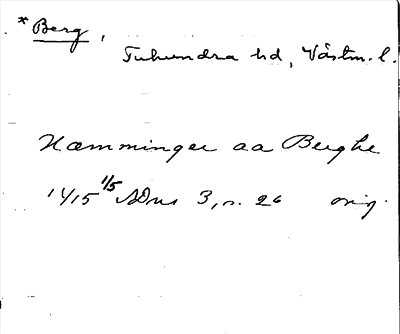 * Berg,
Tuhundra hd, Västm. l.
Hæmminger aa Berghe
1415 1/5 SDns 3, n. 26 orig.